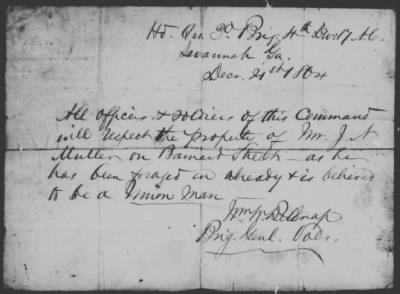 Hd. Qrs. 3d Brig. 4th Div. 17 A.C.
Savannah Ga.
Decr. 21st 1864
All officers & soldiers of this Command
will respect the property of Mr. J. N.
Muller on Barnard Street - as he
has been foraged on already & is believed
to be a Union Man
Wm W. Belknap
Brig. Genl. Vols.